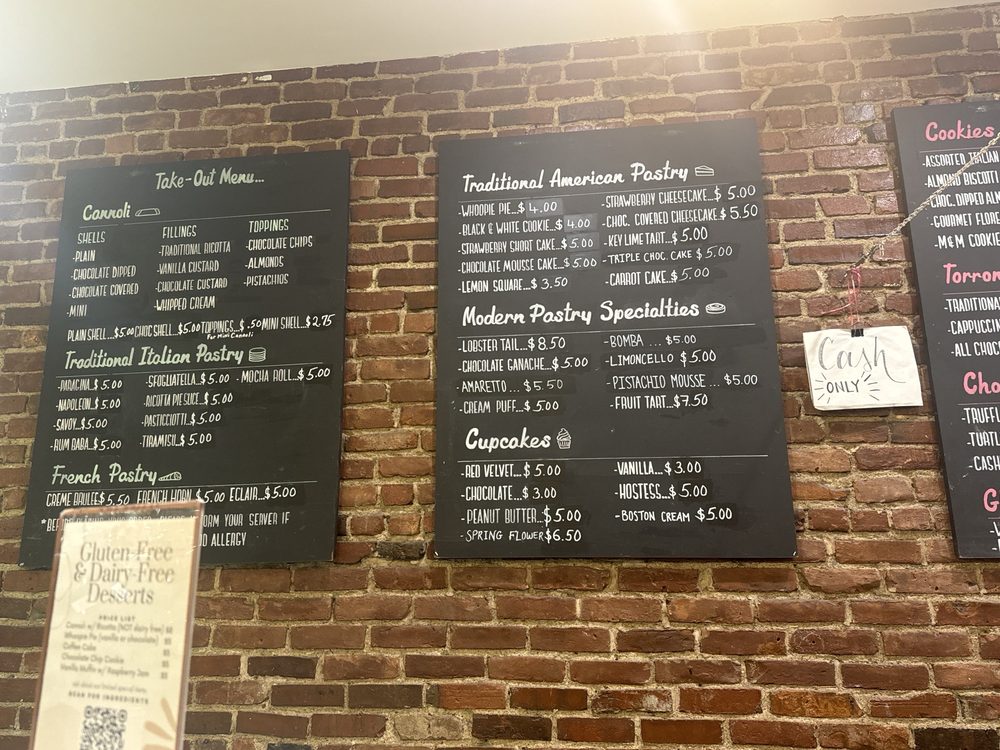 Take-Out Menu...
Cannoli
SHELLS
-PLAIN
-CHOCOLATE DIPPED
-CHOCOLATE COVERED
-MINI
FILLINGS
-TRADITIONAL RICOTTA
-VANILLA CUSTARD
-CHOCOLATE CUSTARD
-WHIPPED CREAM
TOPPINGS
-CHOCOLATE CHIPS
-ALMONDS
-PISTACHIOS
PLAIN SHELL...$5.00 CHOC SHELL...$5.00 TOPPINGS...$.50 MINI SHELL...$2.75
For Mini Cannoli
Traditional Italian Pastry
-NAPOLEON..$5.00
-SAVOY...$5.00
-RUM BABA..$5.00
-SFOGLIATELLA...$5.00
-RICOTTA PIE SLICE...$5.00
-PASTICCIOTTI...$5.00
-TIRAMISU...$5.00
-MOCHA ROLL...$5.00
French Pastry
CREME BRULEE$5.50 FRENCH HORN $5.00 ECLAIR...$5.00
FORM YOUR SERVER IF
ALLERGY
Traditional American Pastry
-WHOOPIE PIE...$4.00
-BLACK & WHITE COOKIE...$4.00
-STRAWBERRY SHORT CAKE...$5.00
-CHOCOLATE MOUSSE CAKE...$5.00
-LEMON SQUARE...$3.50
-STRAWBERRY CHEESECAKE...$5.00
-CHOC. COVERED CHEESECAKE.$5.50
-KEY LIME TART...$5.00
-TRIPLE CHOC. CAKE $5.00
CARROT CAKE...$5.00
Modern Pastry Specialties
-LOBSTER TAIL...$8.50
-CHOCOLATE GANACHE...$5.00
-AMARETTO...$5.50
-CREAM PUFF...$5.00
-BOMBA...$5.00
-LIMONCELLO $5.00
-PISTACHIO MOUSSE...$5.00
-FRUIT TART...$7.50
Cupcakes
-RED VELVET...$5.00
-CHOCOLATE...$3.00
-PEANUT BUTTER...$5.00
-SPRING FLOWER$6.50
-VANILLA...$3.00
-HOSTESS...$5.00
-BOSTON CREAM $5.00
Cash
ONLY
Cookies
-ASSORTED ITALIAN
-ALMOND BISCOTTI
-CHOC. DIPPED
-GOURMET
-M&M COOKIE
Torron
-TRADITIONAL
-CAPPUCCIN
-ALL CHOC
Cho
-TRUFFL
-TURTL
-CASH
G
Gluten-Free
& Dairy-Free
Desserts
PRICE LIST
Cannoli w/ Ricotta (NOT dairy free)
Whoopie Pie (vanilla or chocolate)
Coffee Cake
Chocolate Chip Cookie
Vanilla Muffin w/ Raspberry Jam
SCAN FOR INGREDIENTS